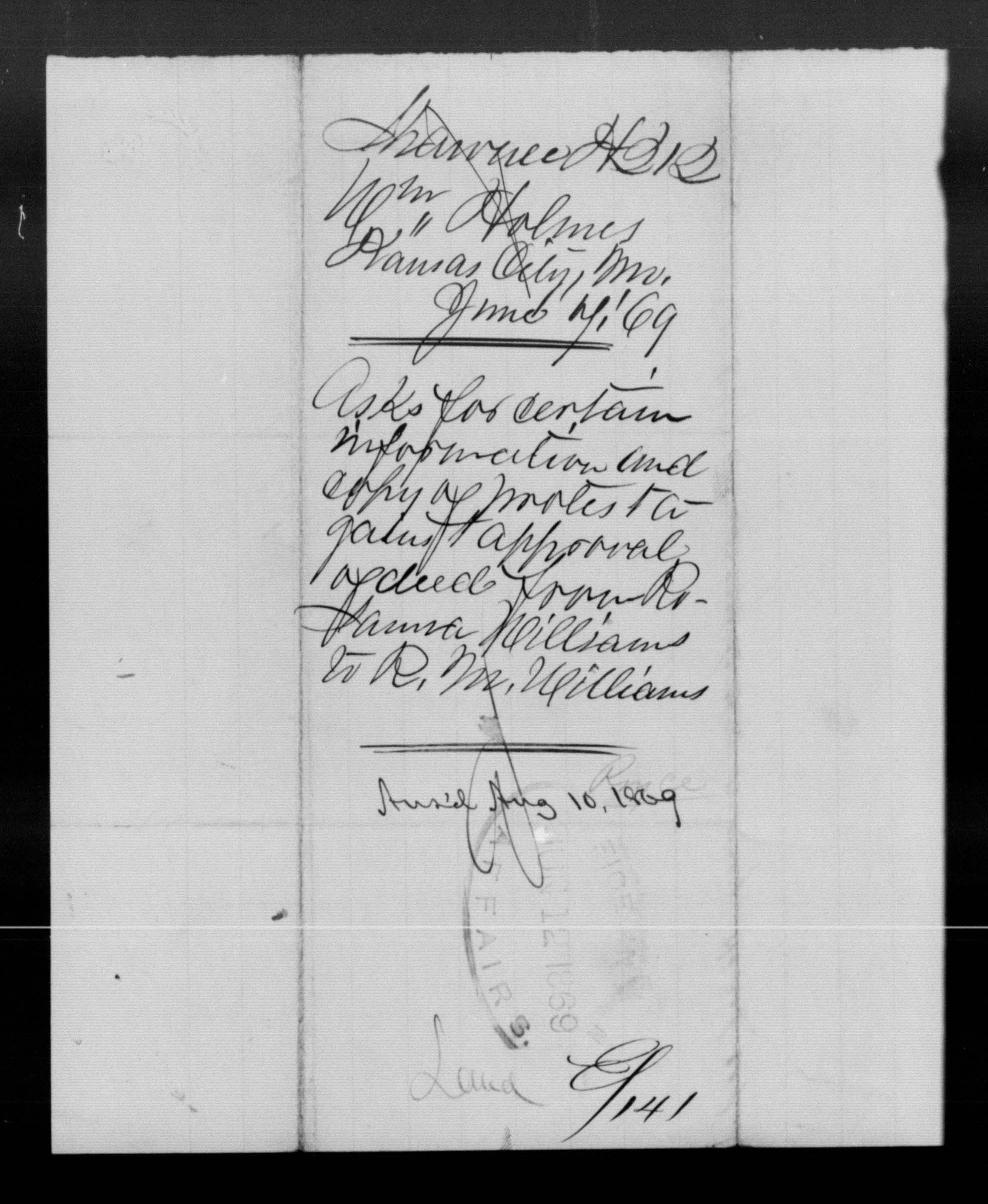 Shawnee H212
Wm Holmes
Kansas City, Mo.
June 7, '69
Asks for certain
information and
copy of protest a-
gainst approval
of deed from Ro-
sanna Williams
to R. M. Williams
Ans'd Aug 10, 1869
AFFAIRS.
JUN 12 1869
Land
C/141